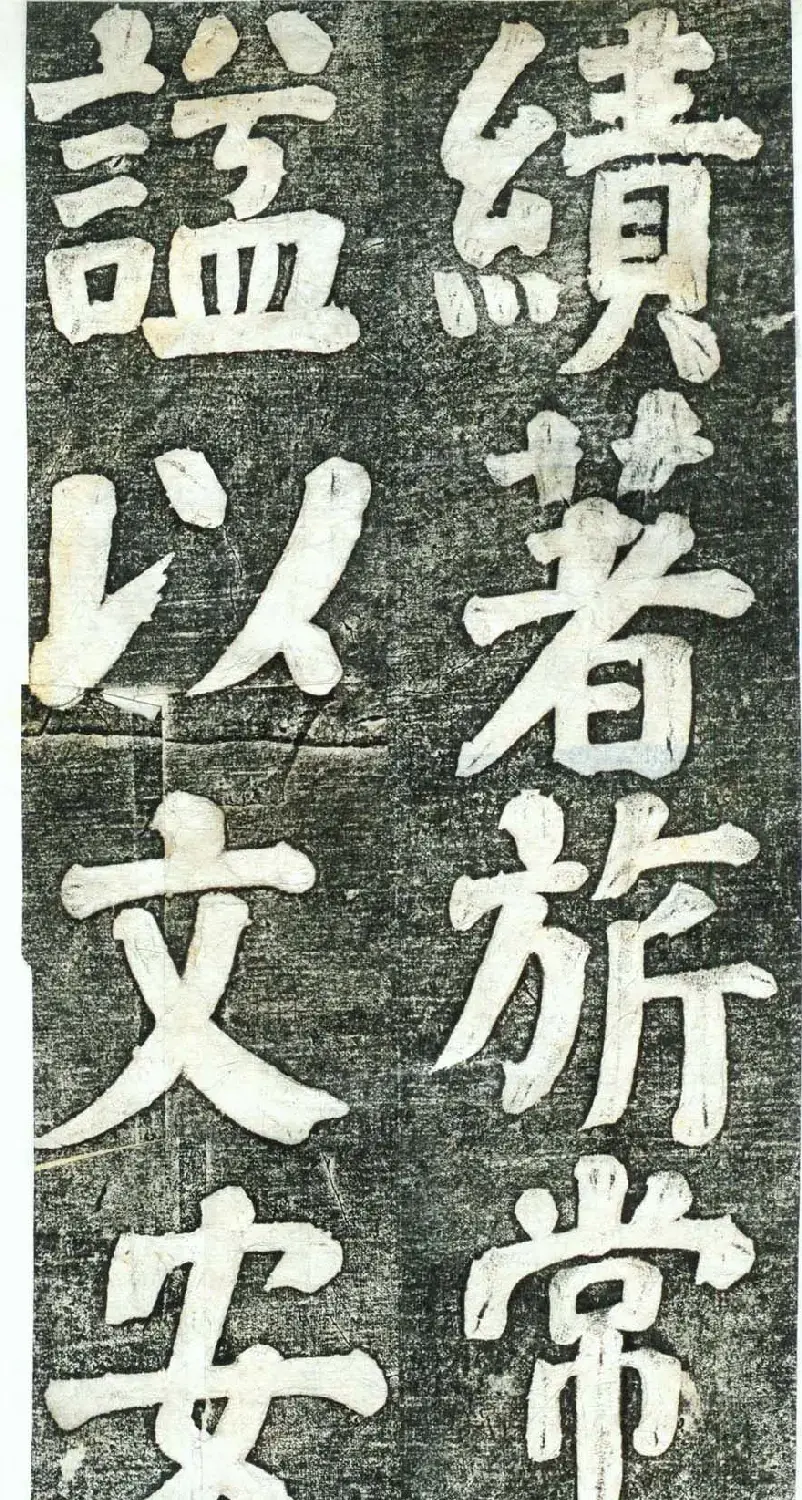 績著旂常
諡以文安